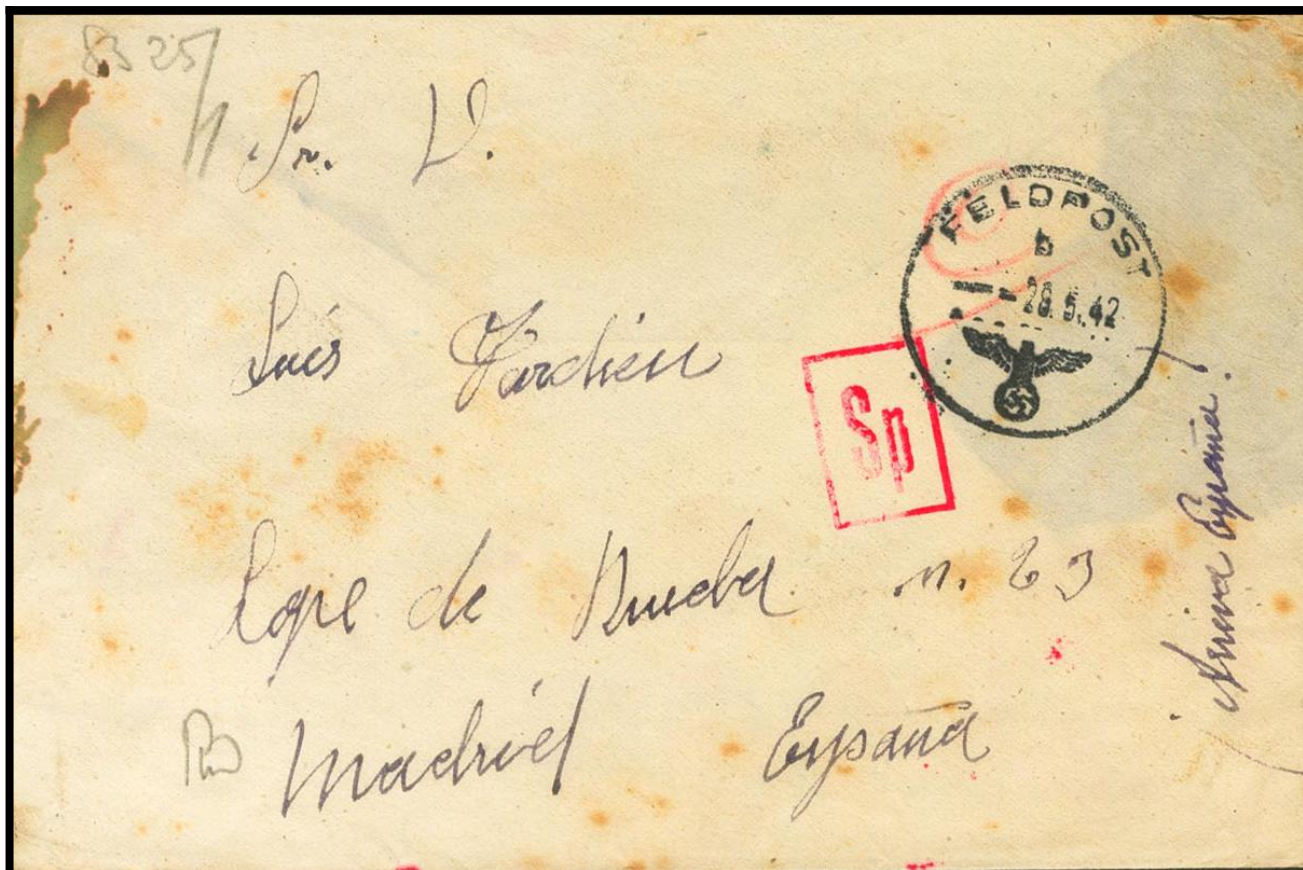 8325/
Sr. D.
FELDPOST
b
28.5.42
Luis
Sp
Lope de Rueda n. 23
Madrid España
¡Arriva España!